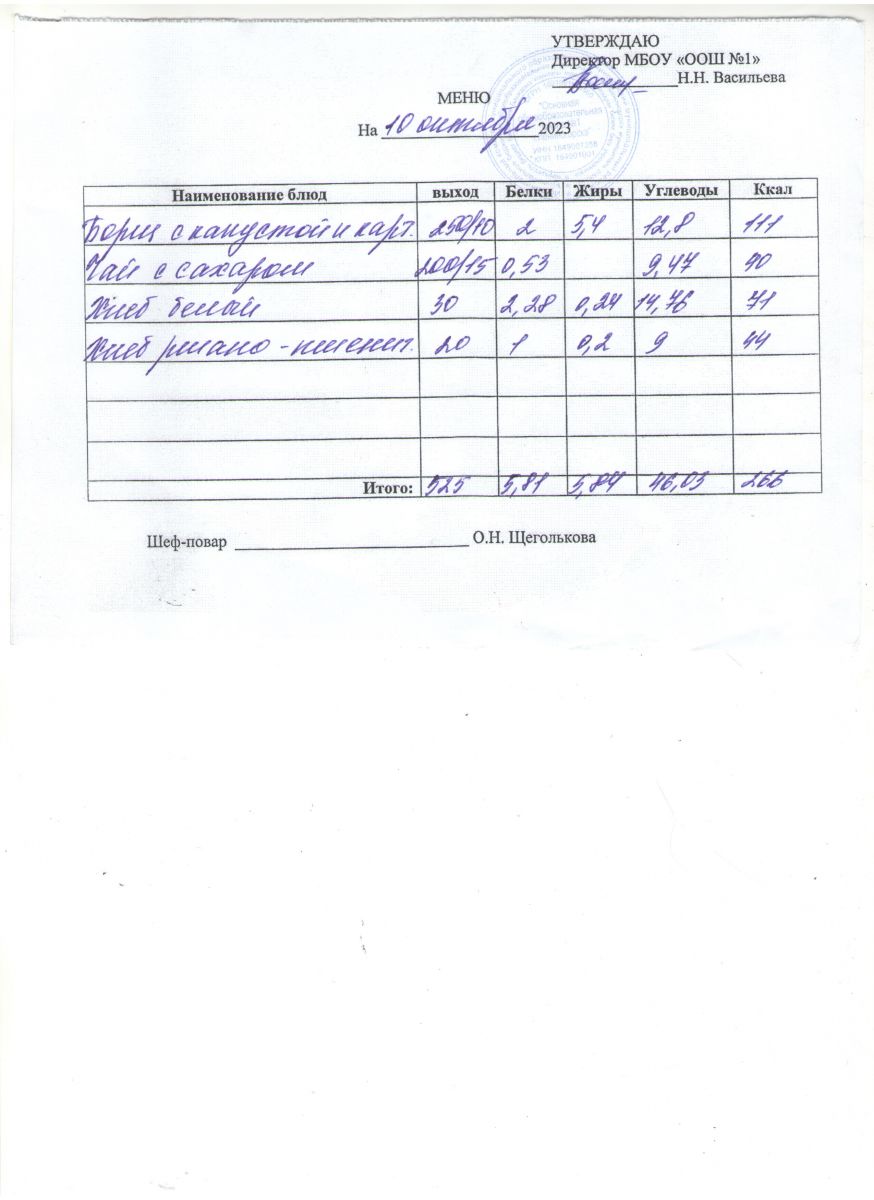 УТВЕРЖДАЮ
Директор МБОУ «ООШ №1»
Н.Н. Васильева
МЕНЮ
На 10 октября 2023
"Основная
общеобразовательная
Наименование блюд выход Белки Жиры Углеводы Ккал
Борщ с капустой и карт. 250/10 2 5,4 12,8 111
Чай с сахаром 200/15 0,53 9,47 40
Хлеб белый 30 2,28 0,24 14,76 71
Хлеб ржано-пшенич. 20 1 0,2 9 44
Итого: 525 5,81 5,84 46,03 266
Шеф-повар О.Н. Щеголькова